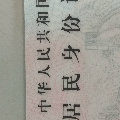 中华人民共和
居民身份